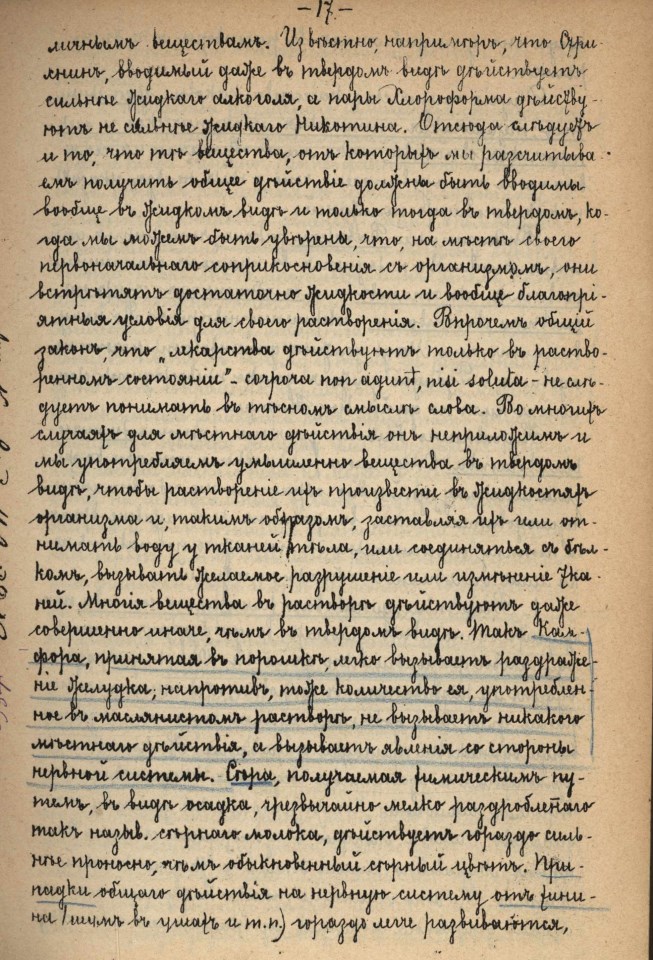 —17.—
личнымъ веществамъ. Извѣстно, напримѣръ, что Стри-
хнинъ, вводимый даже въ твердомъ видѣ дѣйствуетъ
сильнѣе жидкаго алкоголя, а пары Хлороформа дѣйству-
ютъ не сильнѣе жидкаго Никотина. Отсюда слѣдуетъ
и то, что тѣ вещества, отъ которыхъ мы разсчитыва-
емъ получить общее дѣйствіе должны быть вводимы
вообще въ жидкомъ видѣ и только тогда въ твердомъ, ко-
гда мы можемъ быть увѣрены, что, на мѣстѣ своего
первоначальнаго соприкосновенія съ организмомъ, они
встрѣтятъ достаточно жидкости и вообще благопрі-
ятныя условія для своего растворенія. Впрочемъ общій
законъ, что „лекарства дѣйствуютъ только въ раство-
ренномъ состояніи" - corpora non agunt, nisi soluta - не слѣ-
дуетъ понимать въ тѣсномъ смыслѣ слова. Во многихъ
случаяхъ для мѣстнаго дѣйствія онъ неприложимъ и
мы употребляемъ умышленно вещества въ твердомъ
видѣ, чтобы раствореніе ихъ произвести въ жидкостяхъ
организма и, такимъ образомъ, заставляя ихъ или от-
нимать воду у тканей тѣла, или соединяться съ бѣл-
комъ, вызывать желаемое разрушеніе или измѣненіе тка-
ней. Многія вещества въ растворѣ дѣйствуютъ даже
совершенно иначе, чѣмъ въ твердомъ видѣ. Такъ Кам-
фора, принятая въ порошкѣ, легко вызываетъ раздраже-
ніе желудка; напротивъ, тоже количество ея, употреблен-
ное въ маслянистомъ растворѣ, не вызываетъ никакого
мѣстнаго дѣйствія, а вызываетъ явленія со стороны
нервной системы. Сѣра, получаемая химическимъ пу-
темъ, въ видѣ осадка, чрезвычайно мелко раздробленнаго
такъ назыв. сѣрнаго молока, дѣйствуетъ гораздо силь-
нѣе проносно, чѣмъ обыкновенный сѣрный цвѣтъ. При-
падки общаго дѣйствія на нервную систему отъ хини-
на (шумъ въ ушахъ и т.п.) гораздо легче развиваются,